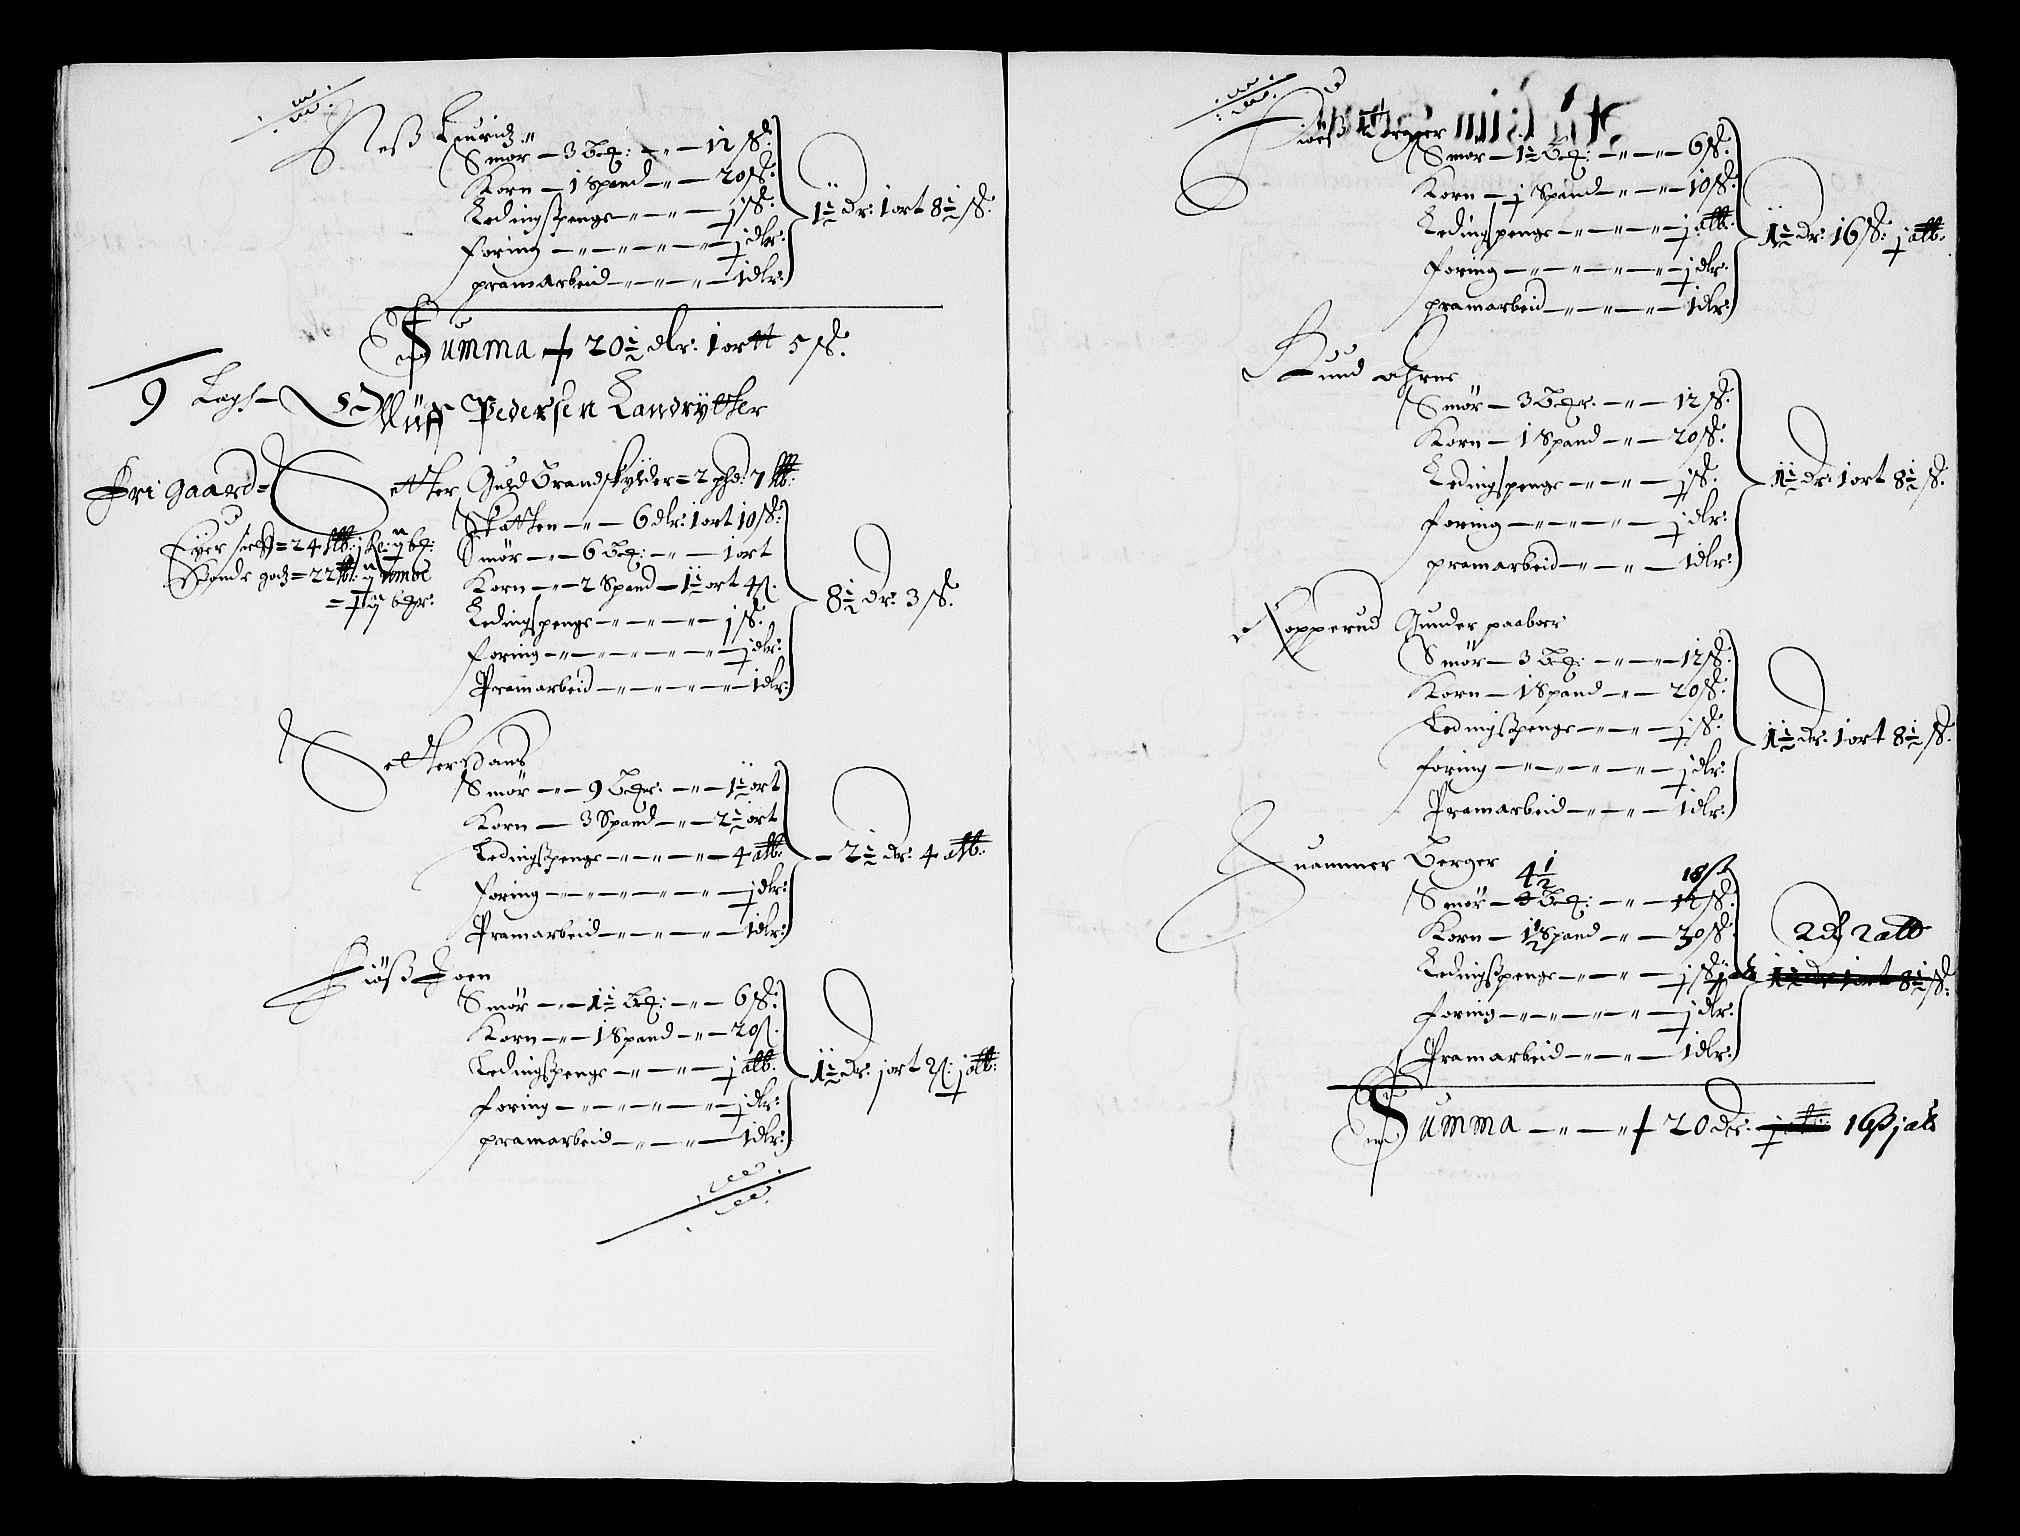 Neß Lauridz
Smør — 3 Bgr: — 12 ß:
Korn — 1 Spand — 20 ß:
Ledingspenge — j ß:
foring — j dlr:
pramarbeid — 1 dlr:
1½ dr: 1 ort 8½ ß:
Summa 20½ dlr: 1 ortt 5 ß:
9 Lagh
Olluff Pedersen Landrytter
Fri gaard = Setter Guldbrand skylder = 2 phd: 7 ltb:
Skatten — 6 dlr: 1 ort 10 ß:
Smør — 6 Bgr: — 1 ort
Korn — 2 Spand — 1½ ort 4 ß.
Ledingspenge — j ß:
foring — j dlr:
Pramarbeid — 1 dlr:
8½ dr: 3 ß.
Setter Hans
Smør — 9 Bgr: — 1½ ort
Korn — 3 Spand — 2½ ort
Ledingßpenge — 4 alb:
foring — j dlr:
Pramarbeid — 1 dlr:
2½ dr: 4 alb:
Kiöß Joen
Smør — 1½ Bgr: — 6 ß:
Korn — 1 Spand — 20 ß.
Ledingßpenge — j alb:
foring — j dlr:
pramarbeid — 1 dlr:
1½ dr: j ort 2 ß: j alb:
Kiöß Torger
Smør — 1½ Bgr: — 6 ß:
Korn — j Spand — 10 ß:
Ledingspenge — j alb:
foring — j dlr:
pramarbeid — 1 dlr:
1½ dr: 16 ß: j alb:
Ruud
Smør — 3 Bgr: — 12 ß:
Korn — 1 Spand — 20 ß:
Ledingspenge — j ß:
foring — j dlr:
pramarbeid — 1 dlr:
1½ dr: 1 ort 8½ ß.
Kopperud Gunder paaboer
Smør — 3 Bgr: — 12 ß:
Korn — 1 Spand — 20 ß:
Ledingßpenge — j ß:
foring — j dlr:
Pramarbeid — 1 dlr:
1½ dr: 1 ort 8½ ß.
Huammer Berger
4½ 18 ß
Smør — Bgr: — ß:
Korn — 1½ Spand — 30 ß:
Ledingßpenge — j ß
foring — j dlr:
Pramarbeid — 1 dlr:
2 dr 2 alb
1½ dr 1 ort 8½ ß:
Summa 20 dr: j alb: 16 ß j alb